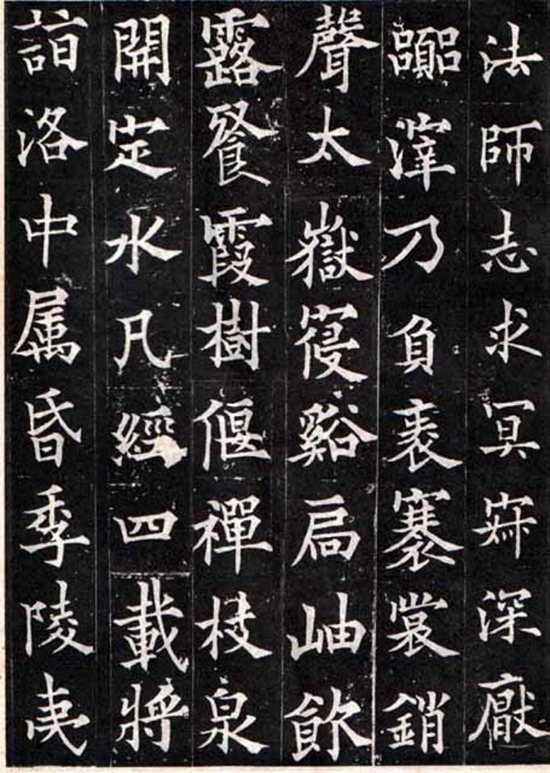 法師志求冥寂深厭
囂滓乃負袠褰裳銷
聲太嶽寢谿扃岫飲
露餐霞樹偃禪枝泉
開定水凡經四載將
詣洛中属昏季陵夷